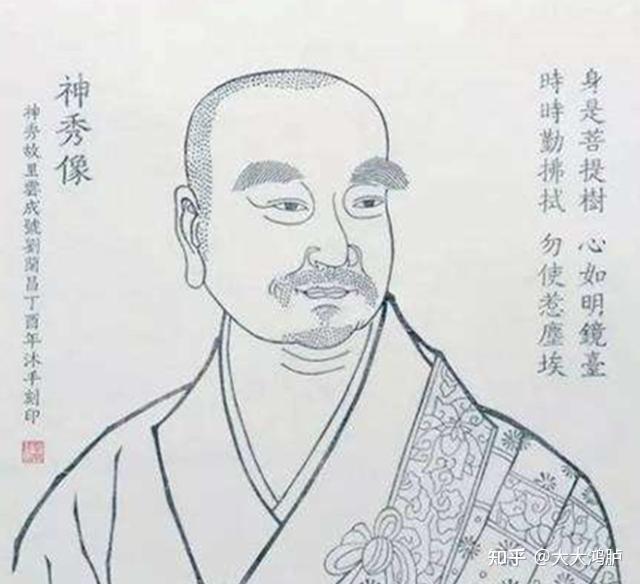 身是菩提樹 心如明鏡臺
時時勤拂拭 勿使惹塵埃
神秀像
神秀故里雲成號劉蘭昌丁酉年沐手刻印
知乎 @大大鸿胪